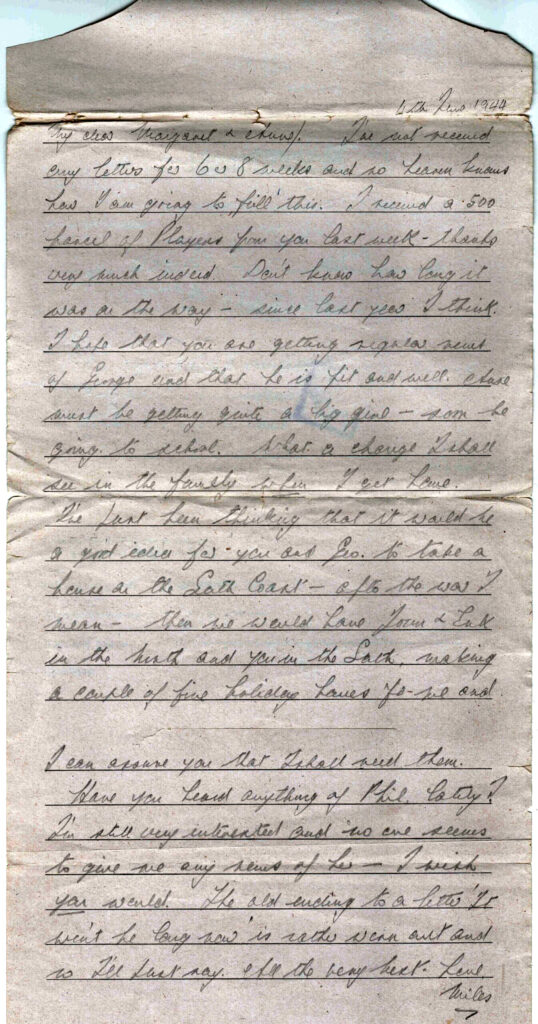 4th June 1944
My dear Margaret & . I've not received
any letter for 6 or 8 weeks and so heaven knows
how I am going to 'fill' this. I received a 500
parcel of Players from you last week - thanks
very much indeed. Don't know how long it
was on the way - since last year I think.
I hope that you are getting regular news
of George and that he is fit and well.
must be getting quite a big girl - soon be
going to school. What a change I shall
see in the family when I get home.
I've just been thinking that it would be
a good idea for you and Geo. to take a
house on the South Coast - after the war I
mean - then we would have & 
in the North and you in the South, making
a couple of fine holiday homes for me and
I can assure you that I shall need them.
Have you heard anything of Phil. lately?
I'm still very interested and no one seems
to give me any news of her - I wish
you would. The old ending to a letter 'It
won't be long now' is rather worn out and
so I'll just say. All the very best. Love
Miles